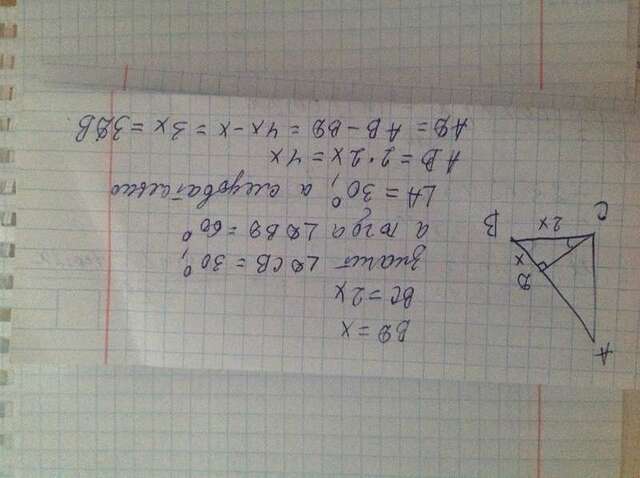 BD = x
BC = 2x
Значит ∠DCB = 30°,
а тогда ∠DBD = 60°
∠A = 30°, а следовательно
AB = 2·2x = 4x
AD = AB − BD = 4x − x = 3x = 3DB
A
D
x
B
2x
C